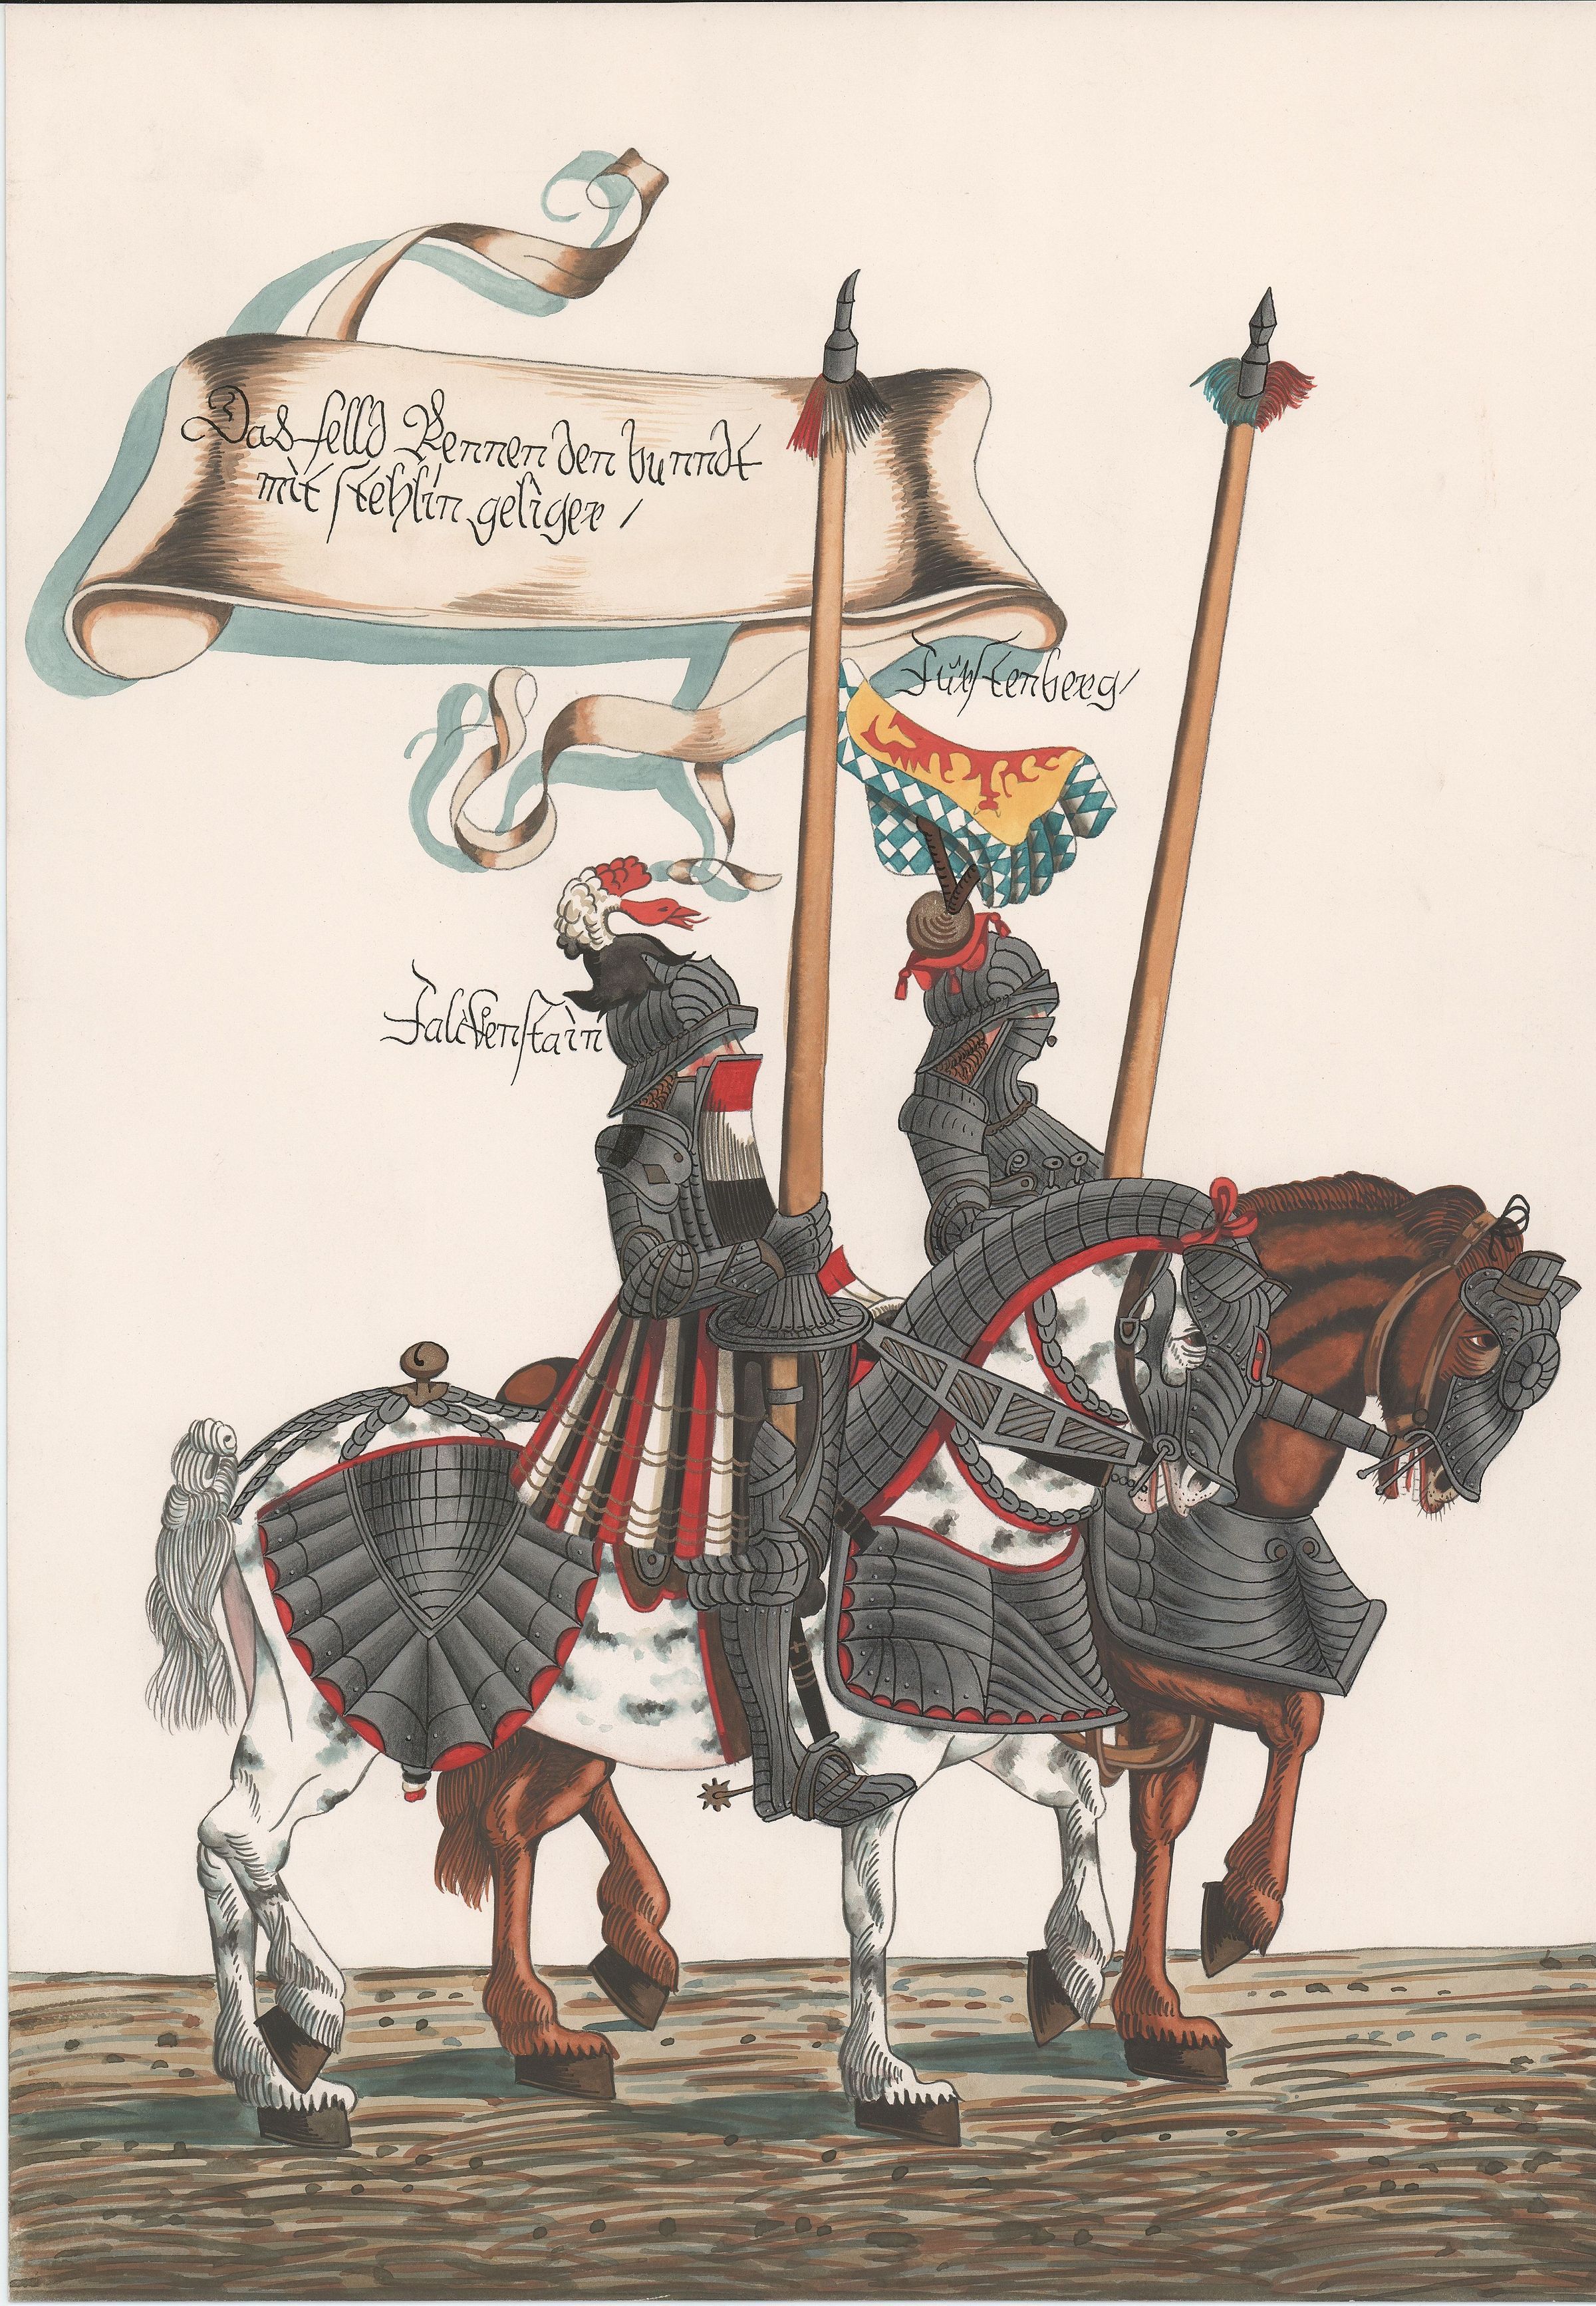 Das felld Rennen den bunndt
mit stehlin geliger /
Fürstenberg /
Falckenstain